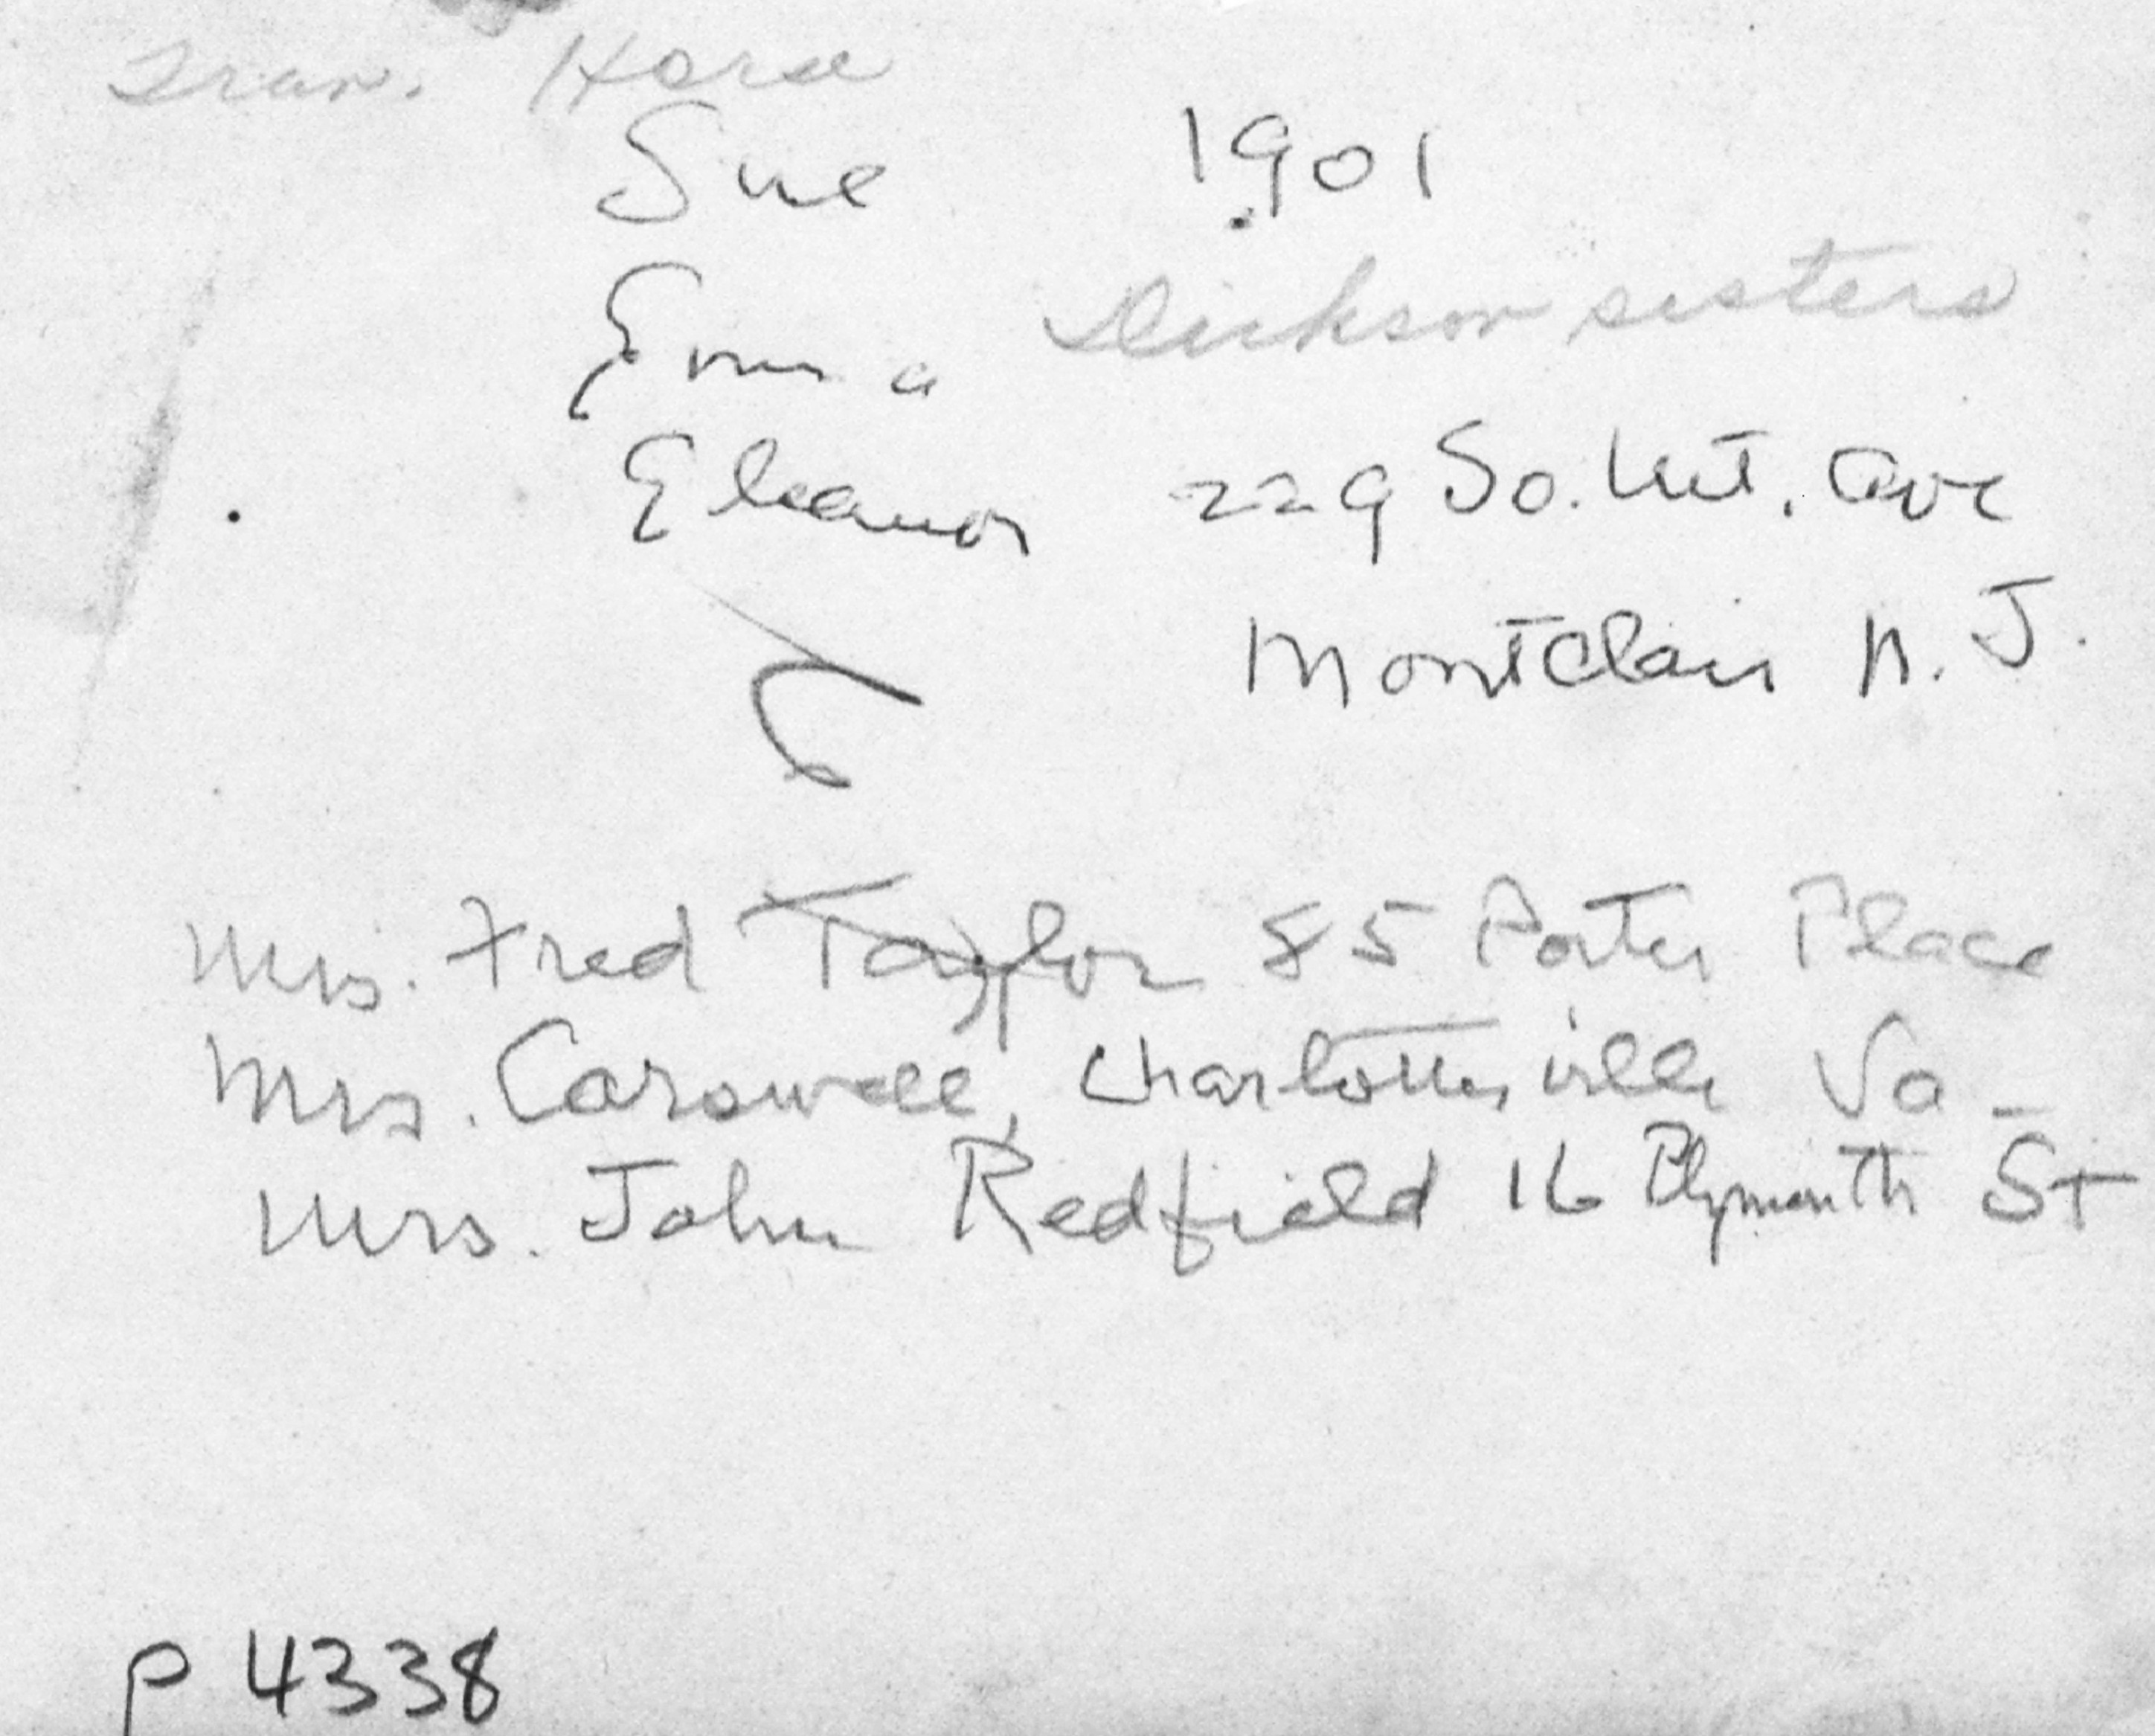 Tran. Horse
Sue 1901
Emma Dickson sisters
Eleanor 229 So. Mt. Ave
Montclair N. J.
Mrs. Fred Taylor 85 Porter Place
Mrs. Carswell, Charlottesville Va
Mrs. John Redfield 16 Plymouth St
P 4338